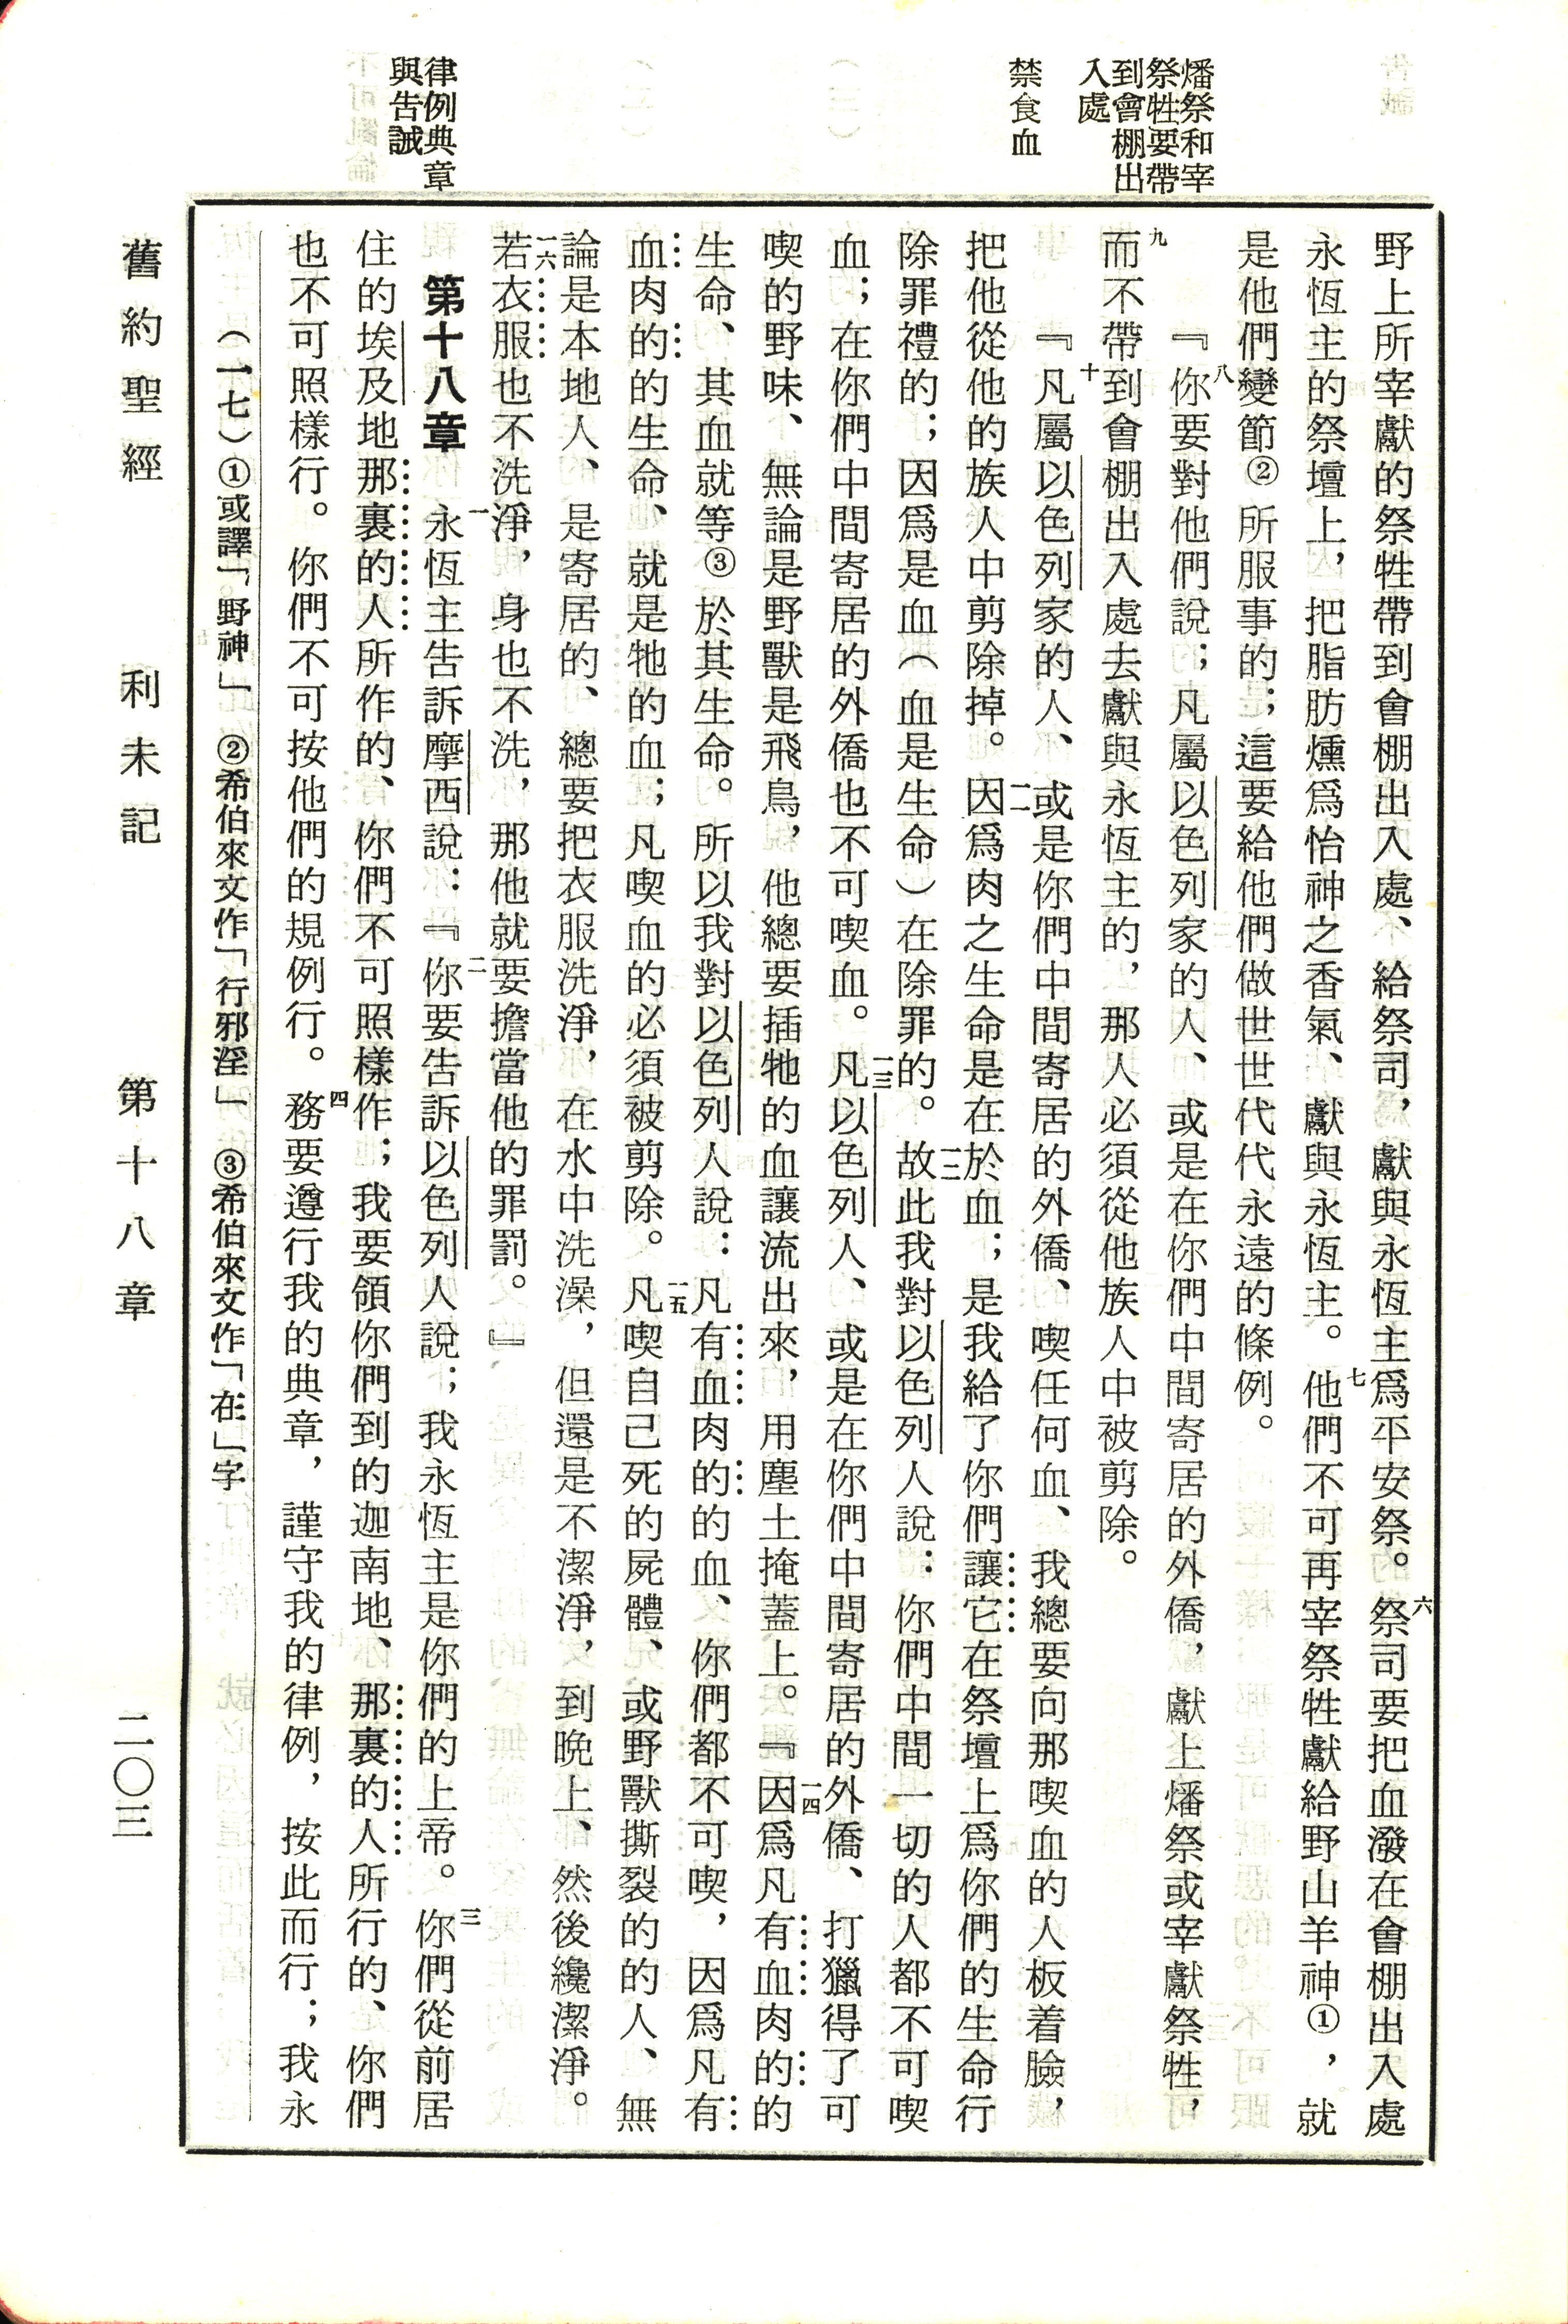 燔祭和宰
祭牲要帶
到會棚出
入處
禁食血
律例典章
與告誡
野上所宰獻的祭牲帶到會棚出入處、給祭司，獻與永恆主爲平安祭。六祭司要把血潑在會棚出入處
永恆主的祭壇上，把脂肪燻爲怡神之香氣、獻與永恆主。七他們不可再宰祭牲獻給野山羊神①，就
是他們變節②所服事的；這要給他們做世世代代永遠的條例。
八『你要對他們說；凡屬以色列家的人、或是在你們中間寄居的外僑，獻上燔祭或宰獻祭牲，
九而不帶到會棚出入處去獻與永恆主的，那人必須從他族人中被剪除。
十『凡屬以色列家的人、或是你們中間寄居的外僑、喫任何血、我總要向那喫血的人板着臉，
把他從他的族人中剪除掉。一一因爲肉之生命是在於血；是我給了你們讓它在祭壇上爲你們的生命行
除罪禮的；因爲是血（血是生命）在除罪的。一二故此我對以色列人說：你們中間一切的人都不可喫
血；在你們中間寄居的外僑也不可喫血。一三凡以色列人、或是在你們中間寄居的外僑、打獵得了可
喫的野味、無論是野獸是飛鳥，他總要插牠的血讓流出來，用塵土掩蓋上。一四『因爲凡有血肉的的
生命、其血就等③於其生命。所以我對以色列人說：凡有血肉的的血、你們都不可喫，因爲凡有
血肉的的生命、就是牠的血；凡喫血的必須被剪除。一五凡喫自己死的屍體、或野獸撕裂的的人、無
論是本地人、是寄居的、總要把衣服洗淨，在水中洗澡，但還是不潔淨，到晚上、然後纔潔淨。
一六若衣服也不洗淨，身也不洗，那他就要擔當他的罪罰。』
第十八章　一永恆主告訴摩西說：二『你要告訴以色列人說；我永恆主是你們的上帝。三你們從前居
住的埃及地那裏的人所作的、你們不可照樣作；我要領你們到的迦南地、那裏的人所行的、你們
也不可照樣行。你們不可按他們的規例行。四務要遵行我的典章，謹守我的律例，按此而行；我永
（一七）①或譯「野神」　②希伯來文作「行邪淫」　③希伯來文作「在」字
舊約聖經　利未記　第十八章　二〇三